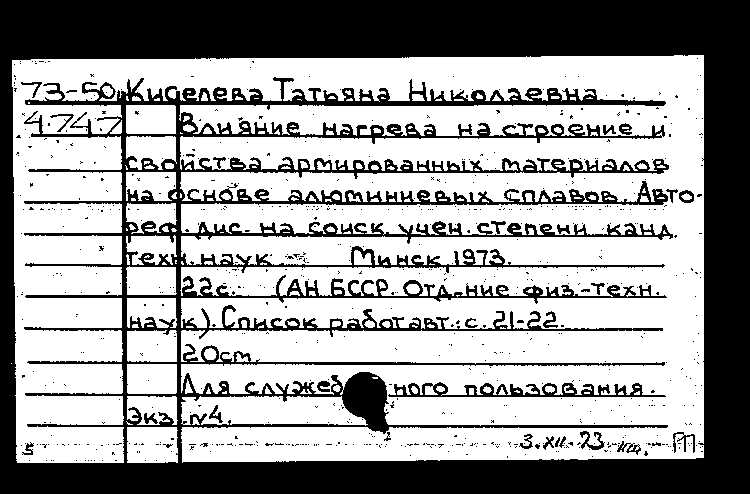 73-50 Киселева, Татьяна Николаевна
4747 Влияние нагрева на строение и
свойства армированных материалов
на основе алюминиевых сплавов. Авто-
реф. дис. на соиск. учен. степени канд.
техн. наук. Минск, 1973.
22с. (АН БССР. Отд-ние физ.-техн.
наук). Список работ авт.: с. 21-22.
20см.
Для служебного пользования.
Экз. №4.
5 3.XII.73